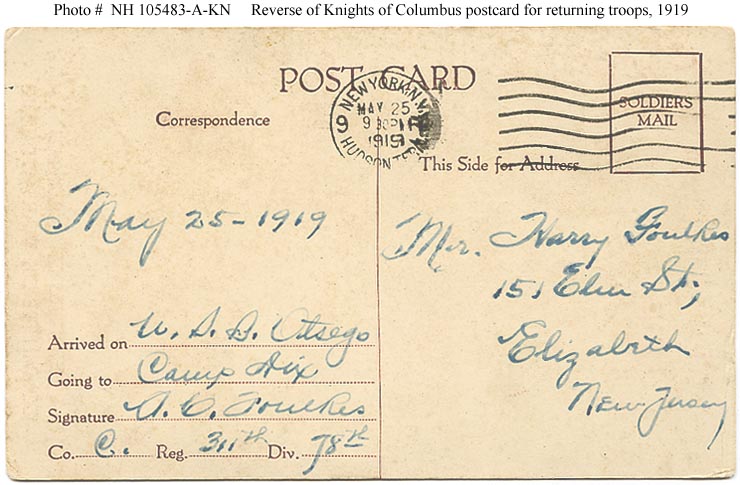 Photo # NH 105483-A-KN Reverse of Knights of Columbus postcard for returning troops, 1919
POST CARD
NEW YORK, N.Y.
MAY 25
9 30 PM
1919
HUDSON TER
9
SOLDIERS
MAIL
Correspondence
This Side for Address
May 25-1919
Arrived on U. S. S. Otsego
Going to Camp Dix
Signature A. C. Foulkes
Co. C. Reg. 311th Div. 78th
Mr. Harry Foulkes
151 Elm St,
Elizabeth
New Jersey